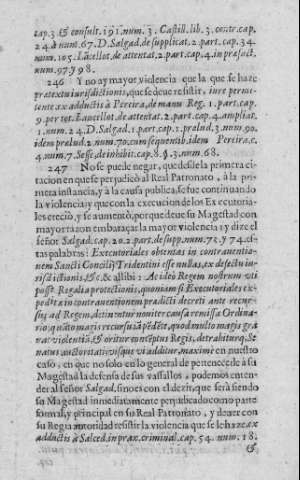 cap. 3. & consult. 191. num. 3. Castill. lib. 3. contr. cap.
24. à num. 67. D. Salgad. de supplicat. 2. part. cap. 34.
num. 105. Lãcellot. de attentat. 2. part. cap. 4. in præfact.
num. 97. y 98.
246 Y no ay mayor violencia que la que se haze
prætextu iurisdictionis, que se deue resistir, iure permit-
tente ex adductis à Pereira, de manu Reg. 1. part. cap.
9. per tot. Lancellot. de attentat. 2. part. cap. 4. amplias.
1. num. 24. D. Salgad. 1. part. cap. 1. prælud. 3. num. 90.
idem prælud. 2. num. 70. cum sequentib. idem Pereira, c.
4. num. 7. Sesse de inhibit. cap. 8. §. 3. num. 68.
247 No se puede negar, que desde la primera ci-
tacion en que se perjudicò al Real Patronato, à la pri-
mera instancia, y à la causa publica, se fue continuando
la violencia, y que con la execucion de los Executoria-
les creciò, y se aumentò, porque deue su Magestad con
mayor razon embaraçar la mayor violencia: y dize el
señor Salgad. cap. 20. 2. part. de supp. num. 71. y 74. es-
tas palabras: Executoriales obtentas in contrauentio-
nem Sancti Concilij Tridentini esse nullas, ex defectu iu-
risdictionis, &c. & allibi: Ac ideò Regem nostrum vti
posse Regalia protectionis, quoniam si Executoriales ex-
pedite in contrauentionem prædicti decreti ante recur-
sus ad Regem, detinentur noniter causa remissa Ordina-
rio, quãto magis recursu iã
 violentia, & oritur conceptus Regis, detrabitur q. Se-
natus auctoritati visque vi additur, maximè en nuestro
caso, en que no solo en lo general de pertenecerle à su
Magestad la defensa de sus vassallos, podemos enten-
der al señor Salgad, sino es con el dezir, que serà siendo
su Magestad inmediatamente perjudicado como parte
formal, y principal en su Real Patronato, y deuer con
su Regia autoridad resistir la violencia que se le haze ex
adductis à Salced. in prax. criminal. cap. 54. num. 18.
&